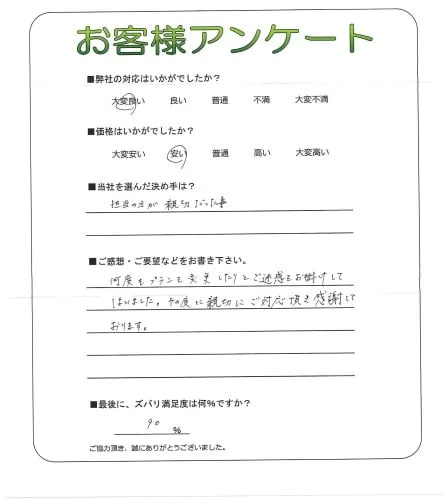 お客様アンケート
■弊社の対応はいかがでしたか？
大変良い 良い 普通 不満 大変不満
■価格はいかがでしたか？
大変安い 安い 普通 高い 大変高い
■当社を選んだ決め手は？
担当の方が親切だった事
■ご感想・ご要望などをお書き下さい。
何度もプランを変更したりとご迷惑をお掛けして
しまいました。その度に親切にご対応頂き感謝して
おります。
■最後に、ズバリ満足度は何％ですか？
90 ％
ご協力頂き、誠にありがとうございました。